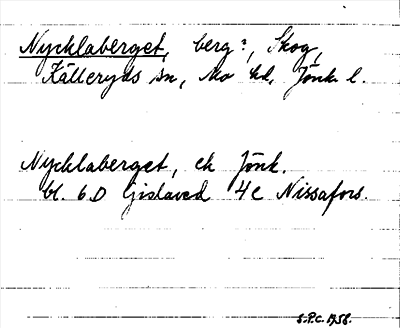 Nycklaberget, berg?, Skog,
Källeryds sn, Mo hd, Jönk. l.
Nycklaberget, ek Jönk.
bl. 6D Gislaved 4e Nissafors.
S.P.C. 1958.